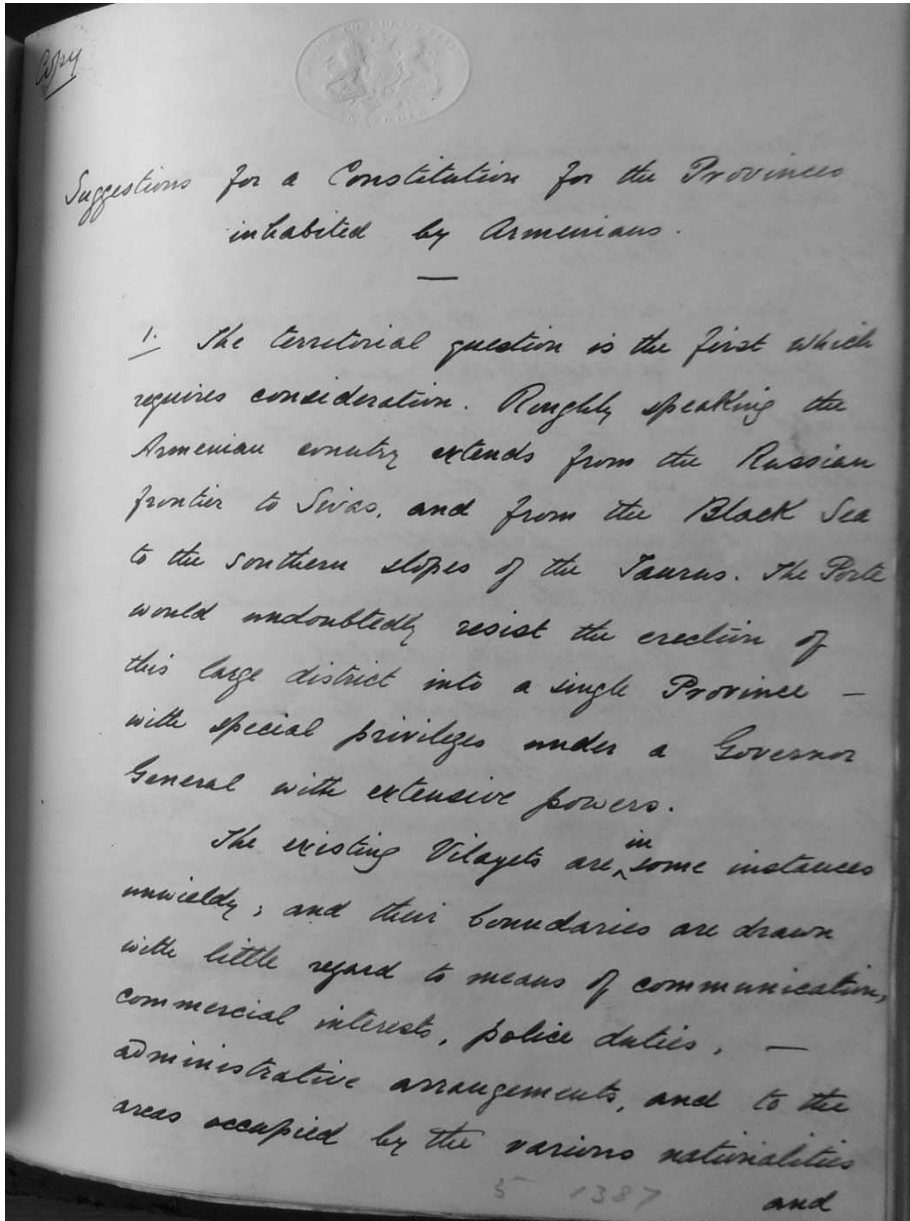 Copy
Suggestions for a Constitution for the Provinces
inhabited by Armenians.
1. The territorial question is the first which
requires consideration. Roughly speaking the
Armenian country extends from the Russian
frontier to Sivas, and from the Black Sea
to the southern slopes of the Taurus. The Porte
would undoubtedly resist the erection of
this large district into a single Province —
with special privileges under a Governor
General with extensive powers.
The existing Vilayets are in some instances
unwieldy; and their boundaries are drawn
with little regard to means of communication,
commercial interests, police duties, —
administrative arrangements, and to the
areas occupied by the various nationalities
5 1387
and